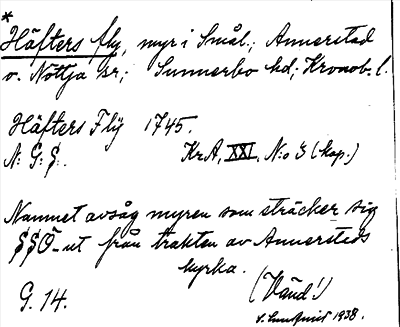 *
Häfters fly, myr i Smål.; Annerstad
o. Nöttja sr; Sunnerbo hd; Kronob. l.
Häfters Flÿ 1745.
N: G: S:. KrA, XXI, N:o 3 (kop.)
Namnet avsåg myren som sträcker sig
SSÖ-ut från trakten av Annerstads
kyrka.
G. 14. (Vänd!)
S. Lundqvist 1938.